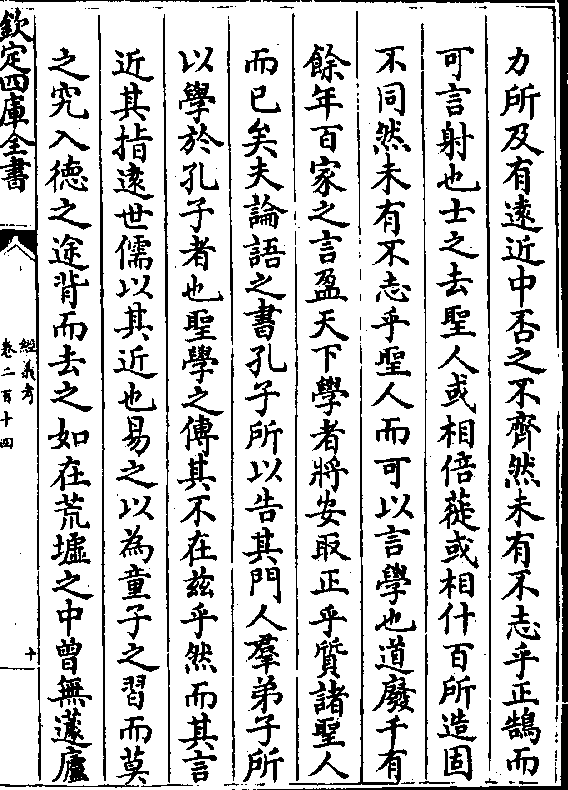 力所及有遠近中否之不齊然未有不志乎正鵠而
可言射也士之去聖人或相倍蓰或相什百所造固
不同然未有不志乎聖人而可以言學也道廢千有
餘年百家之言盈天下學者將安取正乎質諸聖人
而已矣夫論語之書孔子所以告其門人羣弟子所
以學於孔子者也聖學之傳其不在茲乎然而其言
近其指逺世儒以其近也易之以為童子之習而莫
之究入德之途背而去之如在荒墟之中曾無蘧廬
欽定四庫全書
經義考
卷二百十四
十